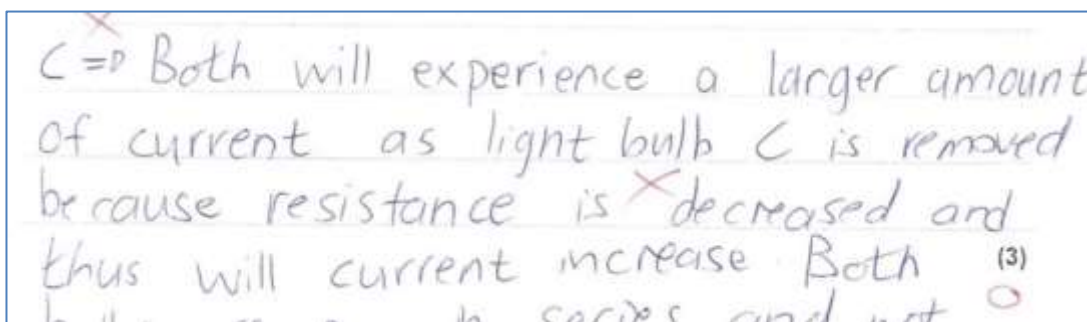 C => Both will experience a larger amount
of current as light bulb C is removed
because resistance is decreased and
thus will current increase Both (3)
series and not